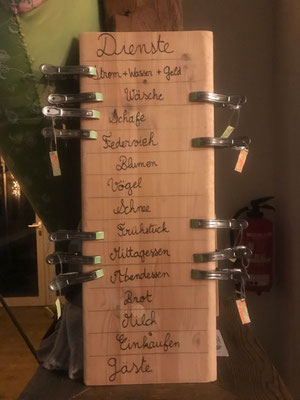 Dienste
Strom + Wasser + Geld
Wäsche
Schafe
Federvieh
Blumen
Vögel
Schnee
Frühstück
Mittagessen
Abendessen
Brot
Milch
Einkaufen
Gäste